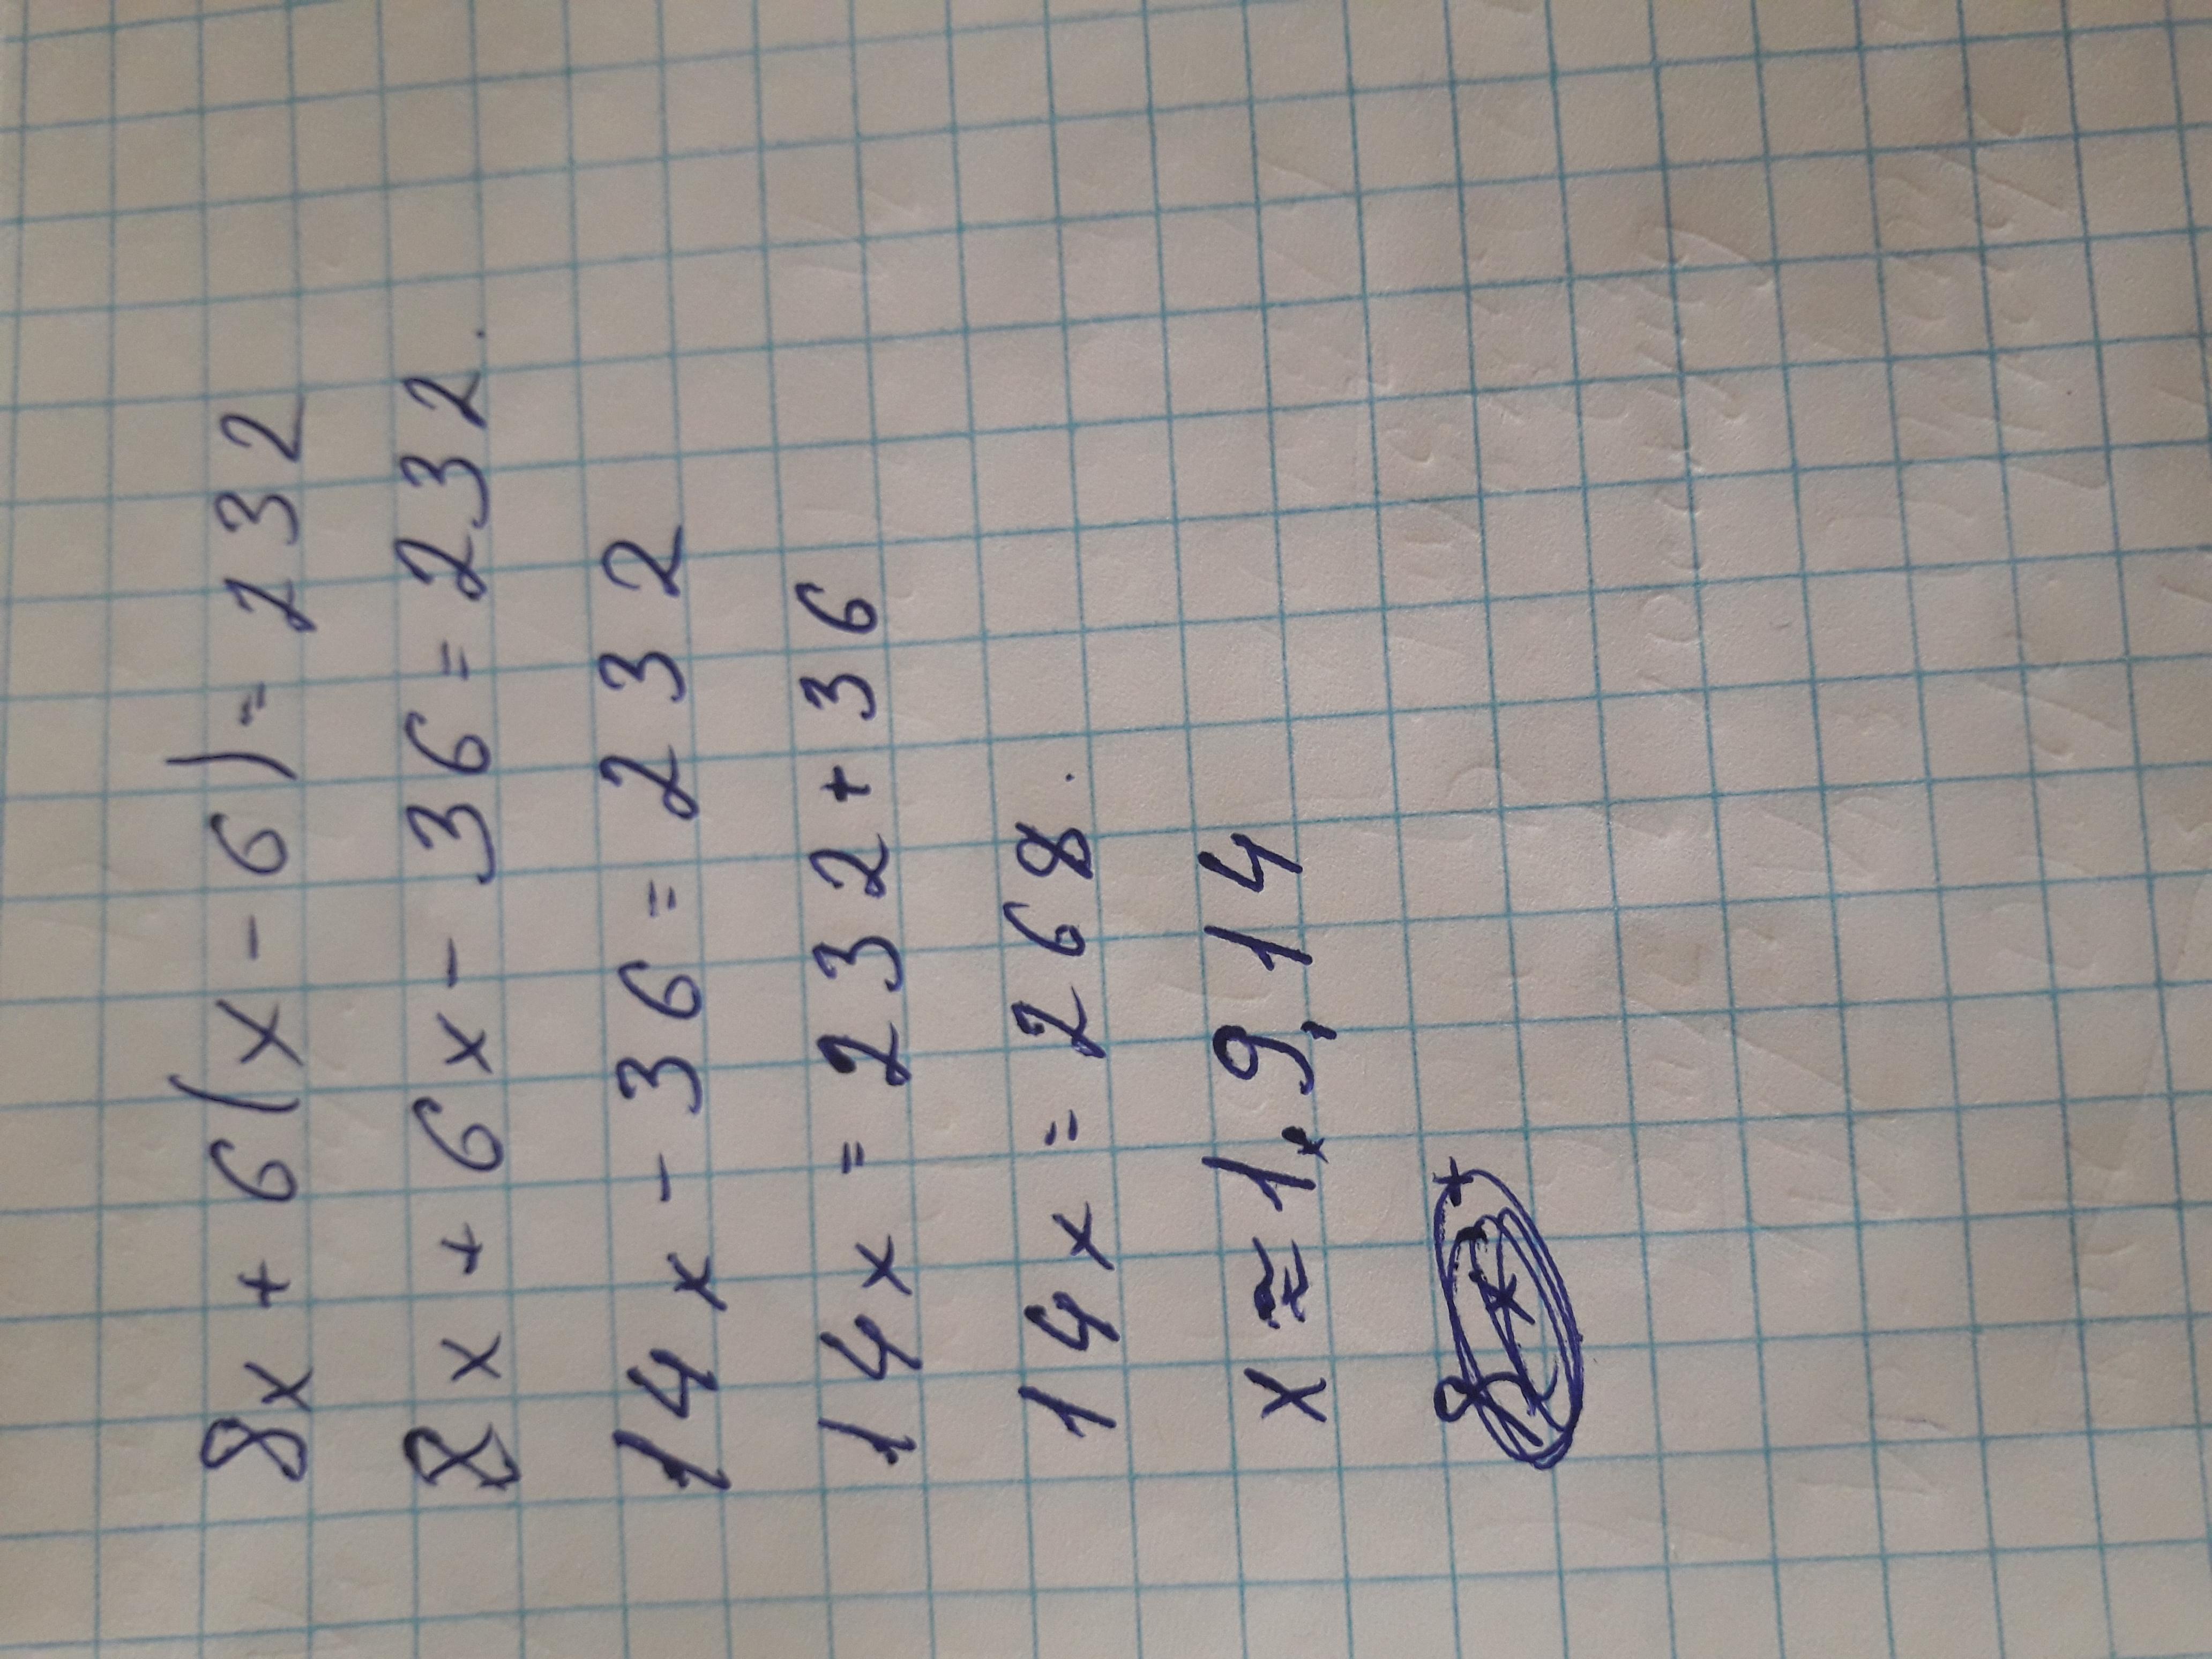 8x + 6(x - 6) = 232
8x + 6x - 36 = 232.
14x - 36 = 232
14x = 232 + 36
14x = 268.
x ≈ 19,14